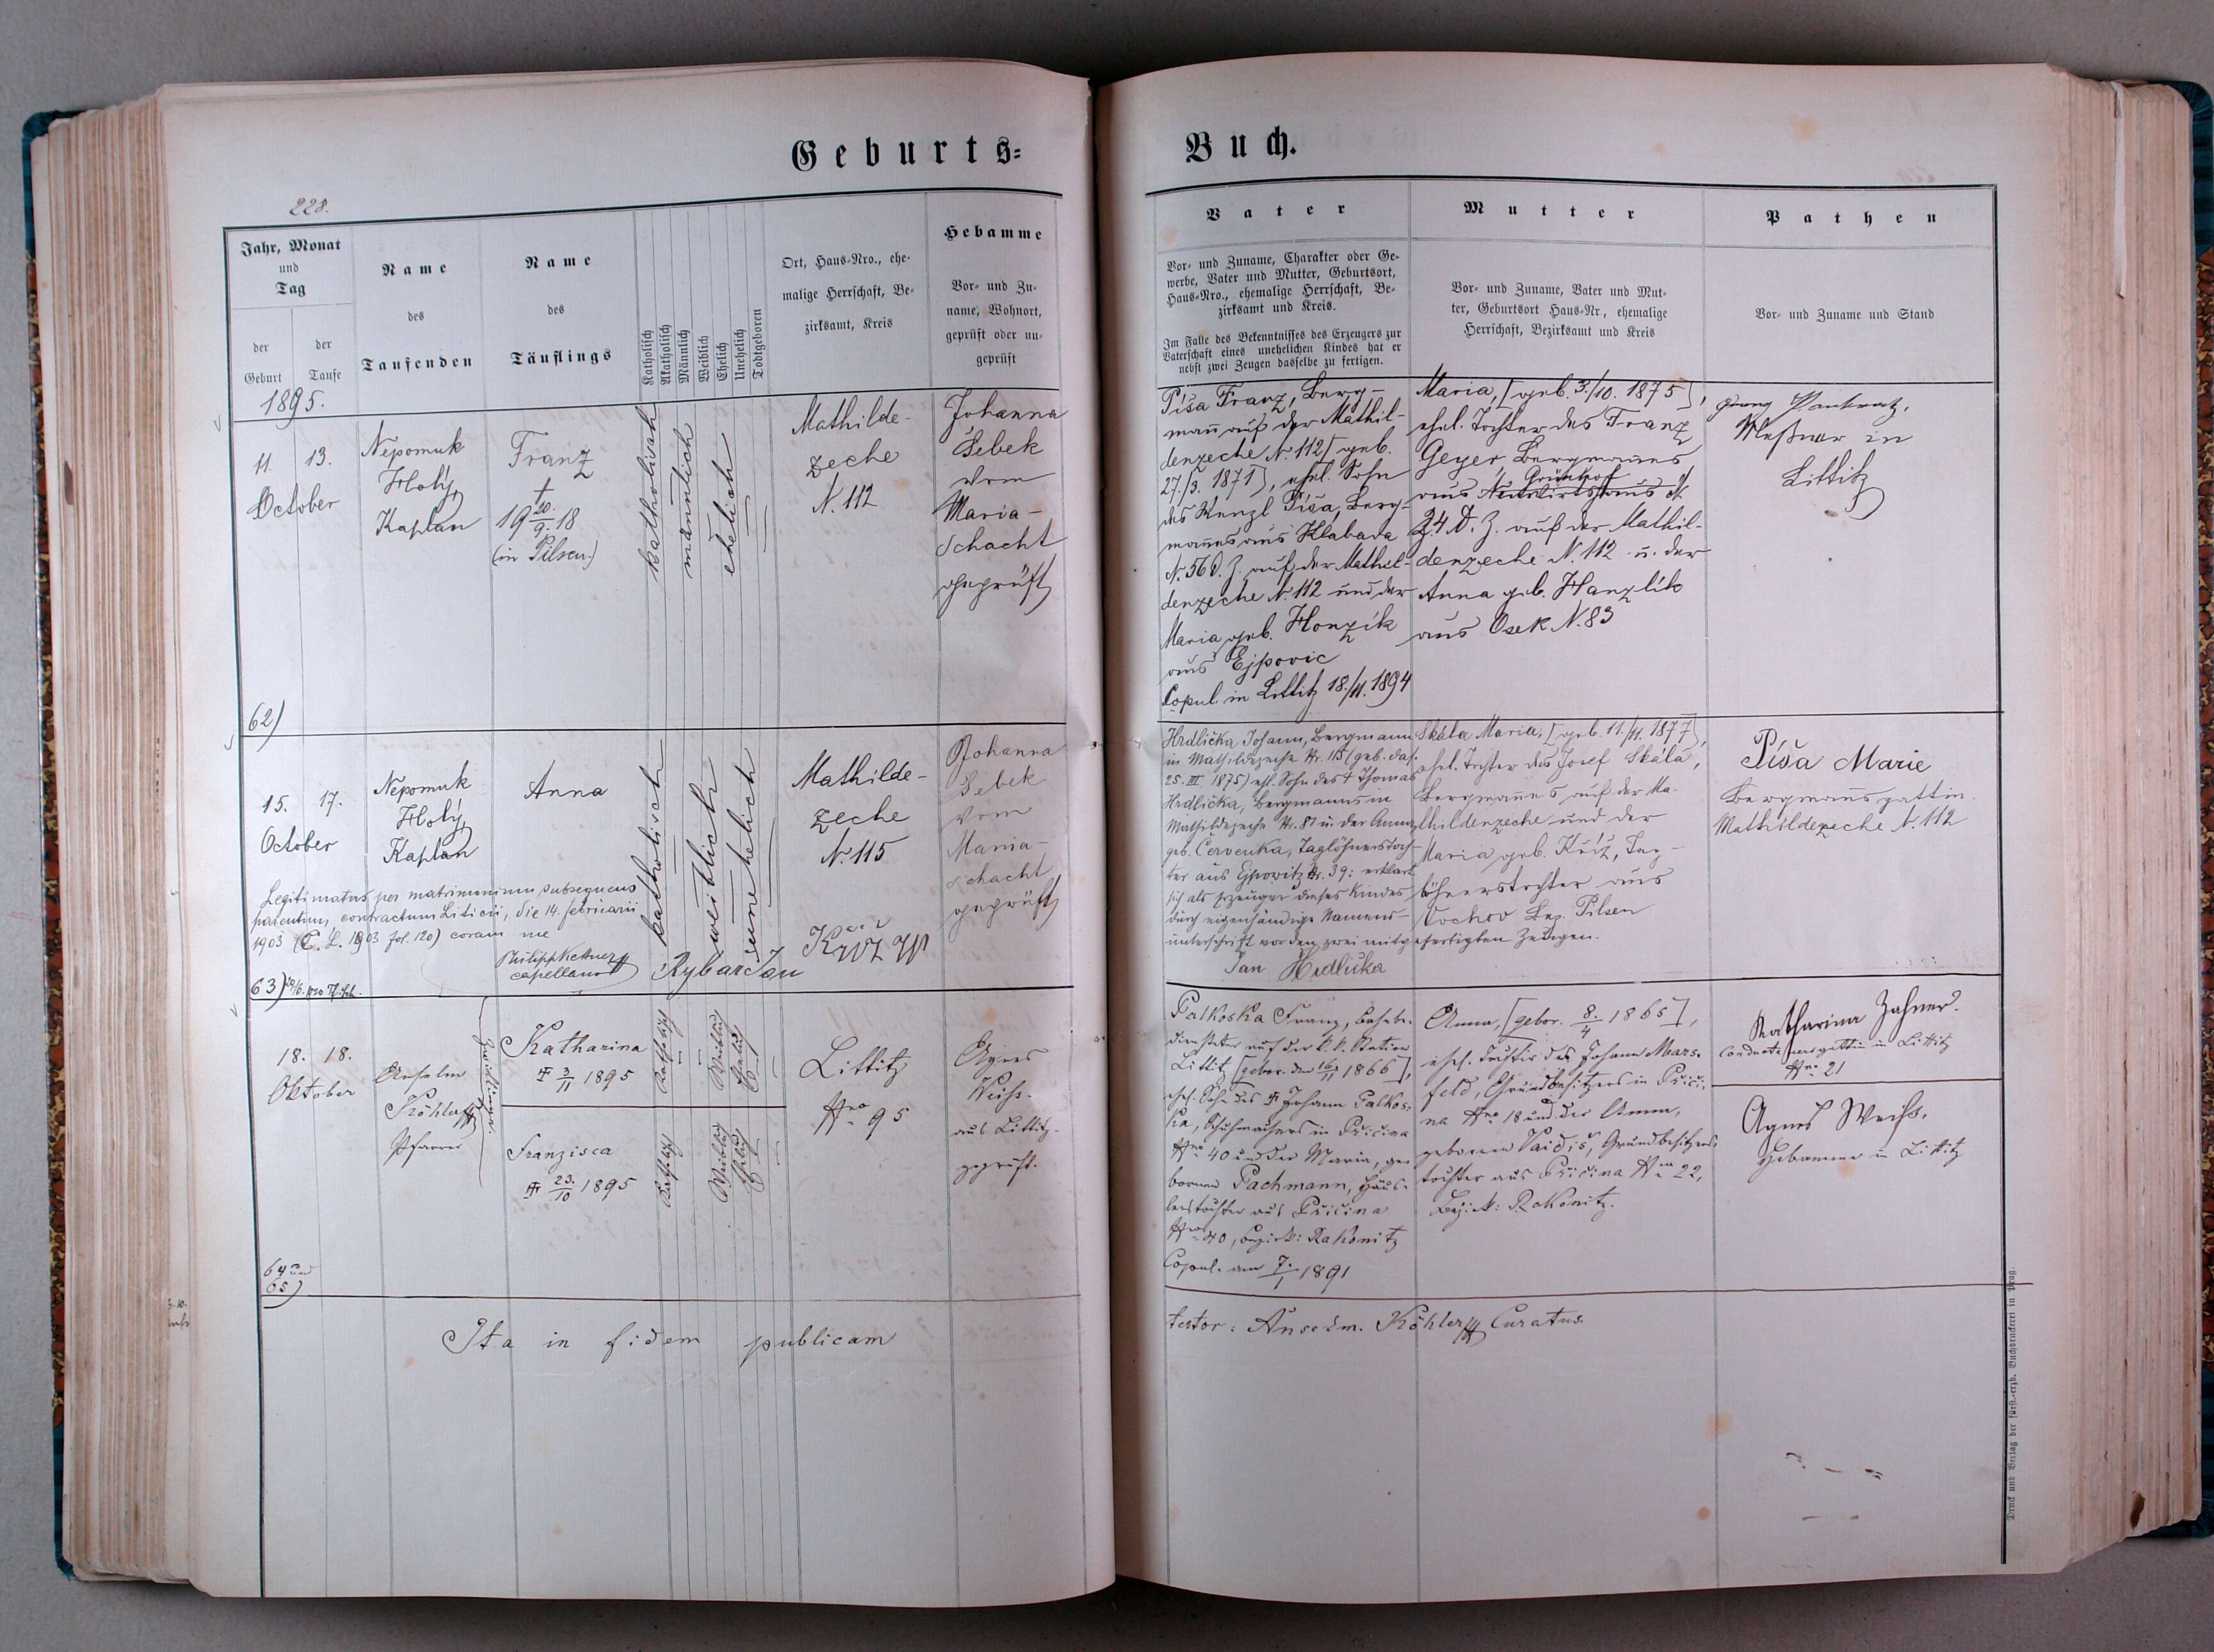 Geburts=
Buch.
228.
Jahr, Monat
und
Tag
der
Geburt
der
Taufe
Name
des
Taufenden
Name
des
Täuflings
Katholisch
Akatholisch
Männlich
Weiblich
Ehelich
Unehelich
Todtgeboren
Ort, Haus-Nro., ehe-
malige Herrschaft, Be-
zirksamt, Kreis
Hebamme
Vor- und Zu-
name, Wohnort,
geprüft oder un-
geprüft
Vater
Vor- und Zuname, Charakter oder Ge-
werbe, Vater und Mutter, Geburtsort,
Haus-Nro., ehemalige Herrschaft, Be-
zirksamt und Kreis.
Im Falle des Bekenntnisses des Erzeugers zur
Vaterschaft eines unehelichen Kindes hat er
nebst zwei Zeugen dasselbe zu fertigen.
Mutter
Vor- und Zuname, Vater und Mut-
ter, Geburtsort Haus-Nr., ehemalige
Herrschaft, Bezirksamt und Kreis
Pathen
Vor- und Zuname und Stand
1895.
11. 13.
October
Nepomuk
Holý,
Kaplan
Franz
†
19 20./9. 18
(in Pilsen.)
katholisch
männlich
ehelich
Mathilde-
zeche
N. 112
Johanna
Šebek
vom
Maria-
schacht
geprüft
Píša Franz, Berg-
mann auf der Mathil-
denzeche N. 112 [geb.
27./3. 1871], ehel. Sohn
des Wenzl Píša, Berg-
mannes aus Klabava
N. 56 d. Z. auf der Mathil-
denzeche N. 112 und der
Maria geb. Honzík
aus Ejpovic
Copul. in Littitz 18./11. 1894
Maria, [geb. 3./10. 1875],
ehel. Tochter des Franz
Geyer Bergmannes
Grünhof
aus Neuwirtshaus N.
24 d. Z. auf der Mathil-
denzeche N. 112 u. der
Anna geb. Hanzlík
aus Osek N. 83
Georg Pankratz,
Meßner in
Littitz
62)
15. 17.
October
Nepomuk
Holý,
Kaplan
Anna
katholisch
weiblich
unehelich
Mathilde-
zeche
N. 115
Johanna
Šebek
vom
Maria-
schacht
geprüft
Legitimatus per matrimonium subsequens
parentum, contractum Liticii, die 14. februarii
1903 (C. L. 1903 fol. 120) coram me
Philipp Kettner
capellanus
Rybar Jan
Hrdlička Johann, Bergmann
in Mathildezeche Nr. 115 (geb. das.
25. III 1875) ehl. Sohn des † Thomas
Hrdlička, Bergmanns in
Mathildezeche Nr. 87 u. der Anna
geb. Červenka, Taglöhnerstoch-
ter aus Ejpowitz Nr. 39: erklärt
sich als Erzeuger dieses Kindes
durch eigenhändige Namens-
unterschrift vor den zwei mitgefertigten Zeugen.
Jan Hrdlička
Skála Maria, [geb. 11./11. 1877],
ehel. Tochter des Josef Skála,
Bergmannes auf der Ma-
thildenzeche und der
Maria geb. Kříž, Tag-
löhnerstochter aus
Vochov Bez. Pilsen
Píša Marie
Bergmannsgattin
Mathildezeche N. 112
63)
18. 18.
Oktober
Anselm
Köhler
Pfarrer
Zwillinge.
Katharina
† 3/11 1895
Katholisch
Weiblich
Ehelich
Franzisca
† 23./10 1895
Katholisch
Weiblich
Ehelich
Littitz
Nro 95
Agnes
Weiß.
aus Littitz.
geprüft.
Palkoska Franz, Bahnbe-
diensteter auf der k. k. Station
Littitz [gebor. den 16/11 1866],
ehel. Sohn des † Johann Palkos-
ka, Schuhmachers in Příčina
Nro 40 und der Maria, ge-
bornen Pachmann, Häus-
lerstochter aus Příčina
Nro 40, Bezirk: Rakonitz
Copul. am 7./1 1891
Anna, [gebor. 8./4 1865],
ehel. Tochter des Johann Mars-
feld, Grundbesitzers in Příči-
na Nro 18 und der Anna,
gebornen Vaidiš, Grundbesitzers-
tochter aus Příčina Nro 22,
Bezirk: Rakonitz.
Katharina Zahner.
Conducteursgattin in Littitz
Nro. 21
Agnes Weiß.
Hebamme in Littitz
64 und
65)
Ita in fidem publicam
testor: Anselm. Köhler Curatus.
Druck und Verlag der fürst.-erzb. Buchdruckerei in Prag.